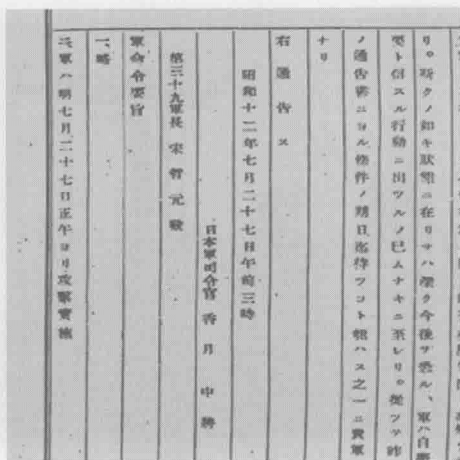 リ。斯クノ如キ狀態ニ在リテハ
要ト信スル行動ニ出ツルノ已ムナキニ至レリ。從ツテ昨
ノ通告書ニヨル條件ノ期日迄待ツコト能ハス之一ニ貴軍
ナリ
右通告ス
昭和十二年七月二十七日午前三時
日本軍司令官 香月中將
第二十九軍長 宋哲元殿
軍命令要旨
一、略
二、軍ハ明七月二十七日正午ヨリ攻擊實施